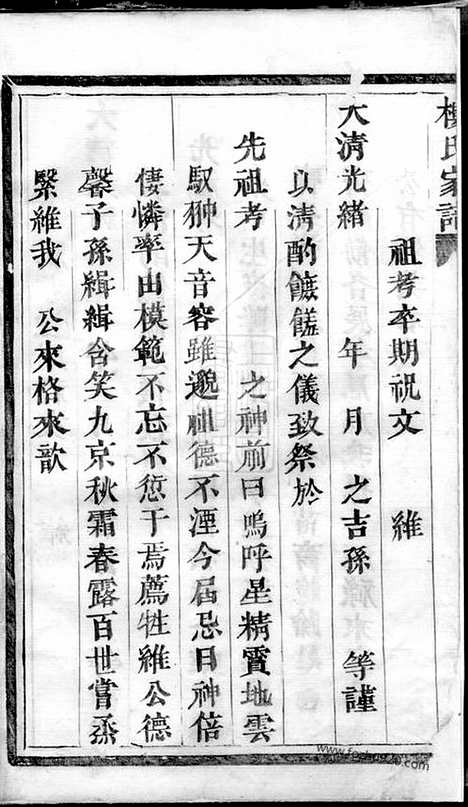 楊氏家譜
祖考卒期祝文　維
大清光緒　年　月　之吉孫　等謹
以清酌饝饈之儀致祭於
先祖考　之神前曰嗚呼星精賁地雲
馭翀天音容雖邈祖德不湮今屆忌日神倍
悽憐率由模範不忘不愆于焉薦牲維公德
馨子孫緝緝含笑九京秋霜春露百世嘗烝
繄維我　公來格來歆